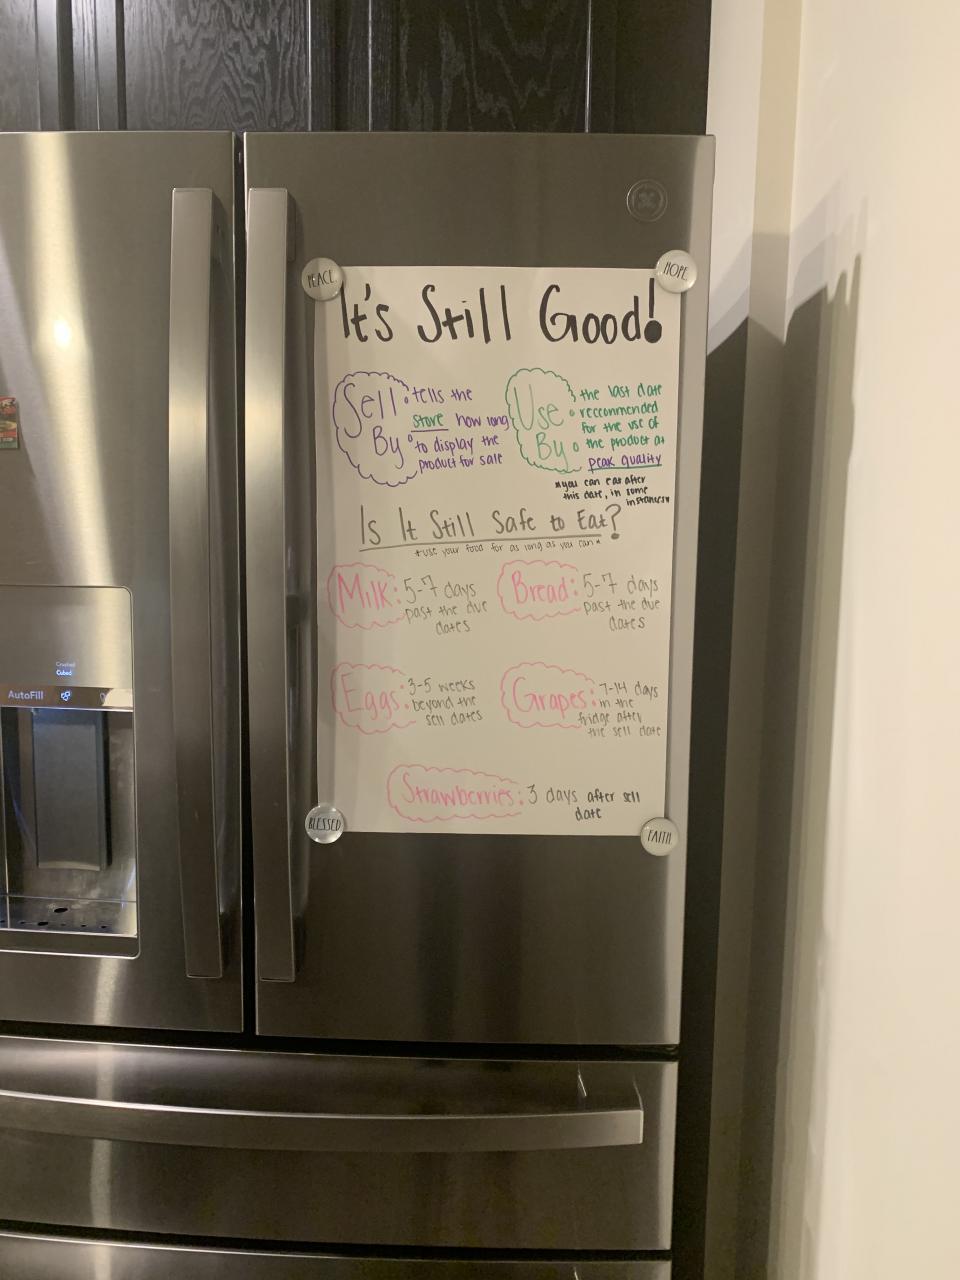 PEACE
HOPE
It's Still Good!
Sell By
tells the
store how long
to display the
product for sale
Use By
the last date
reccommended
for the use of
the product at
peak quality
*you can eat after
this date, in some
instances*
Is It Still Safe to Eat?
*use your food for as long as you can*
Milk: 5-7 days
past the due
dates
Bread: 5-7 days
past the due
dates
Eggs: 3-5 weeks
beyond the
sell dates
Grapes: 7-14 days
in the
fridge after
the sell date
Strawberries: 3 days after sell
date
BLESSED
FAITH
Crushed
Cubed
AutoFill